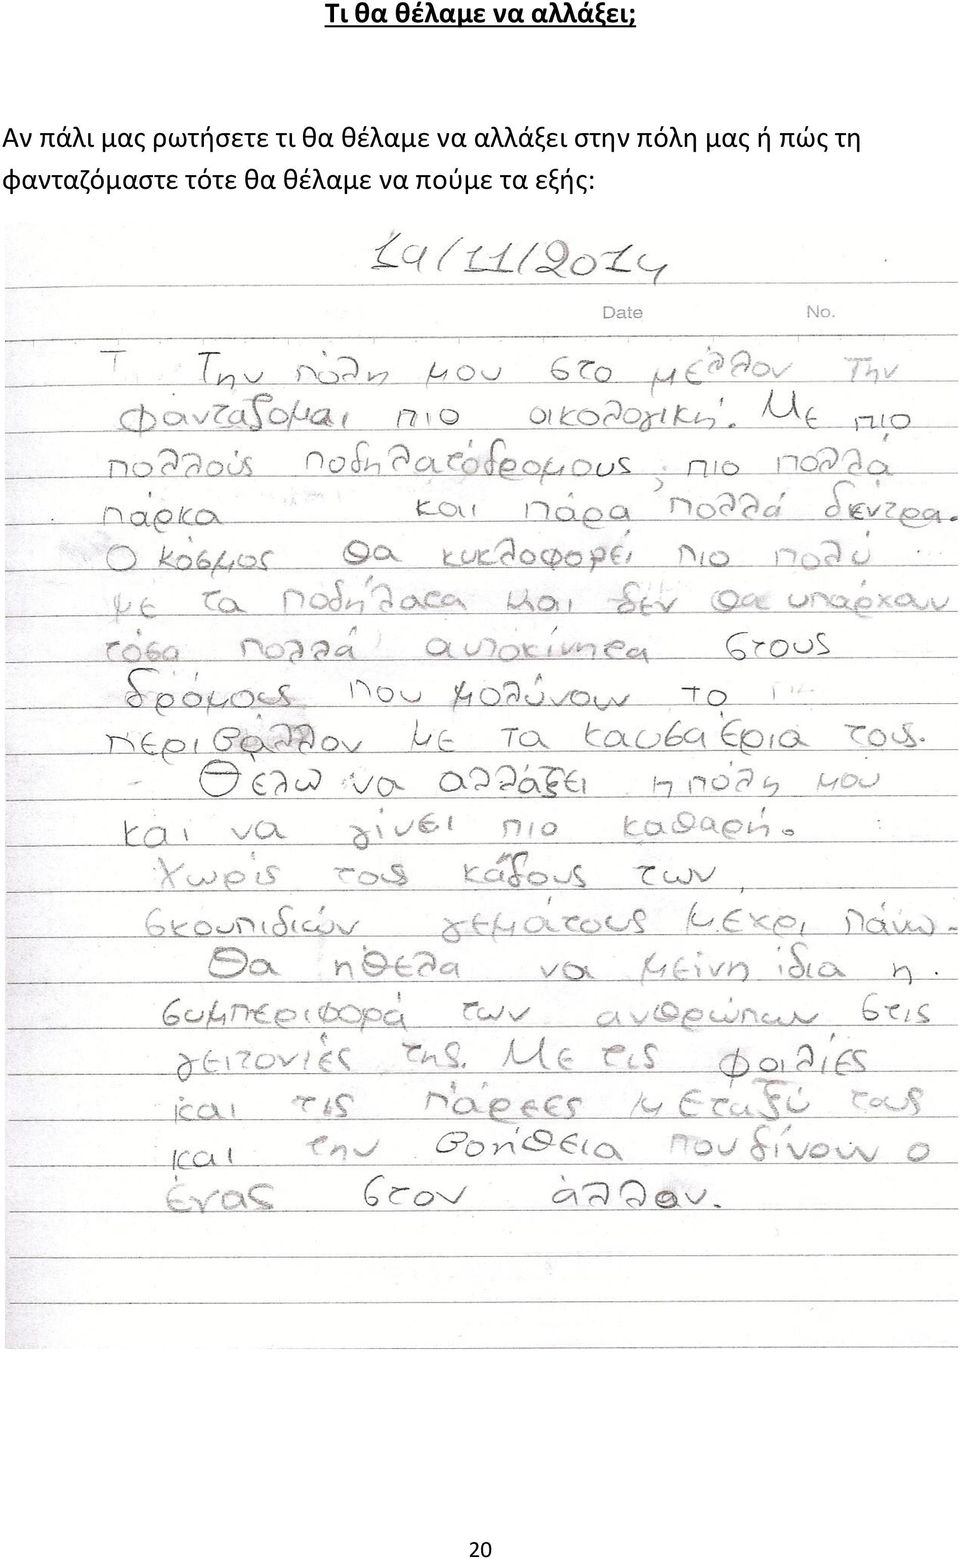 Τι θα θέλαμε να αλλάξει;
Αν πάλι μας ρωτήσετε τι θα θέλαμε να αλλάξει στην πόλη μας ή πώς τη
φανταζόμαστε τότε θα θέλαμε να πούμε τα εξής:
19/11/2014
Date No.
Την πόλη μου στο μέλλον την
φανταζομαι πιο οικολογική. Με πιο
πολλούς ποδηλατόδρομους, πιο πολλά
πάρκα και πάρα πολλά δεντρα.
Ο κόσμος θα κυκλοφορεί πιο πολύ
με τα ποδήλατα και δεν θα υπάρχουν
τόσα πολλά αυτοκίνητα στους
δρόμους που μολύνουν το
περιβάλλον με τα καυσαέρια τους.
Θελω να αλλάξει η πόλη μου
και να γίνει πιο καθαρή.
Χωρίς τους κάδους των
σκουπιδιών γεμάτους μεχρι πάνω.
Θα ηθελα να μείνη ίδια η
συμπεριφορά των ανθρώπων στις
γειτονιές της. Με τις φιλίες
και τις πάρεες μεταξύ τους
και την βοήθεια που δίνουν ο
ένας στον άλλον.
20